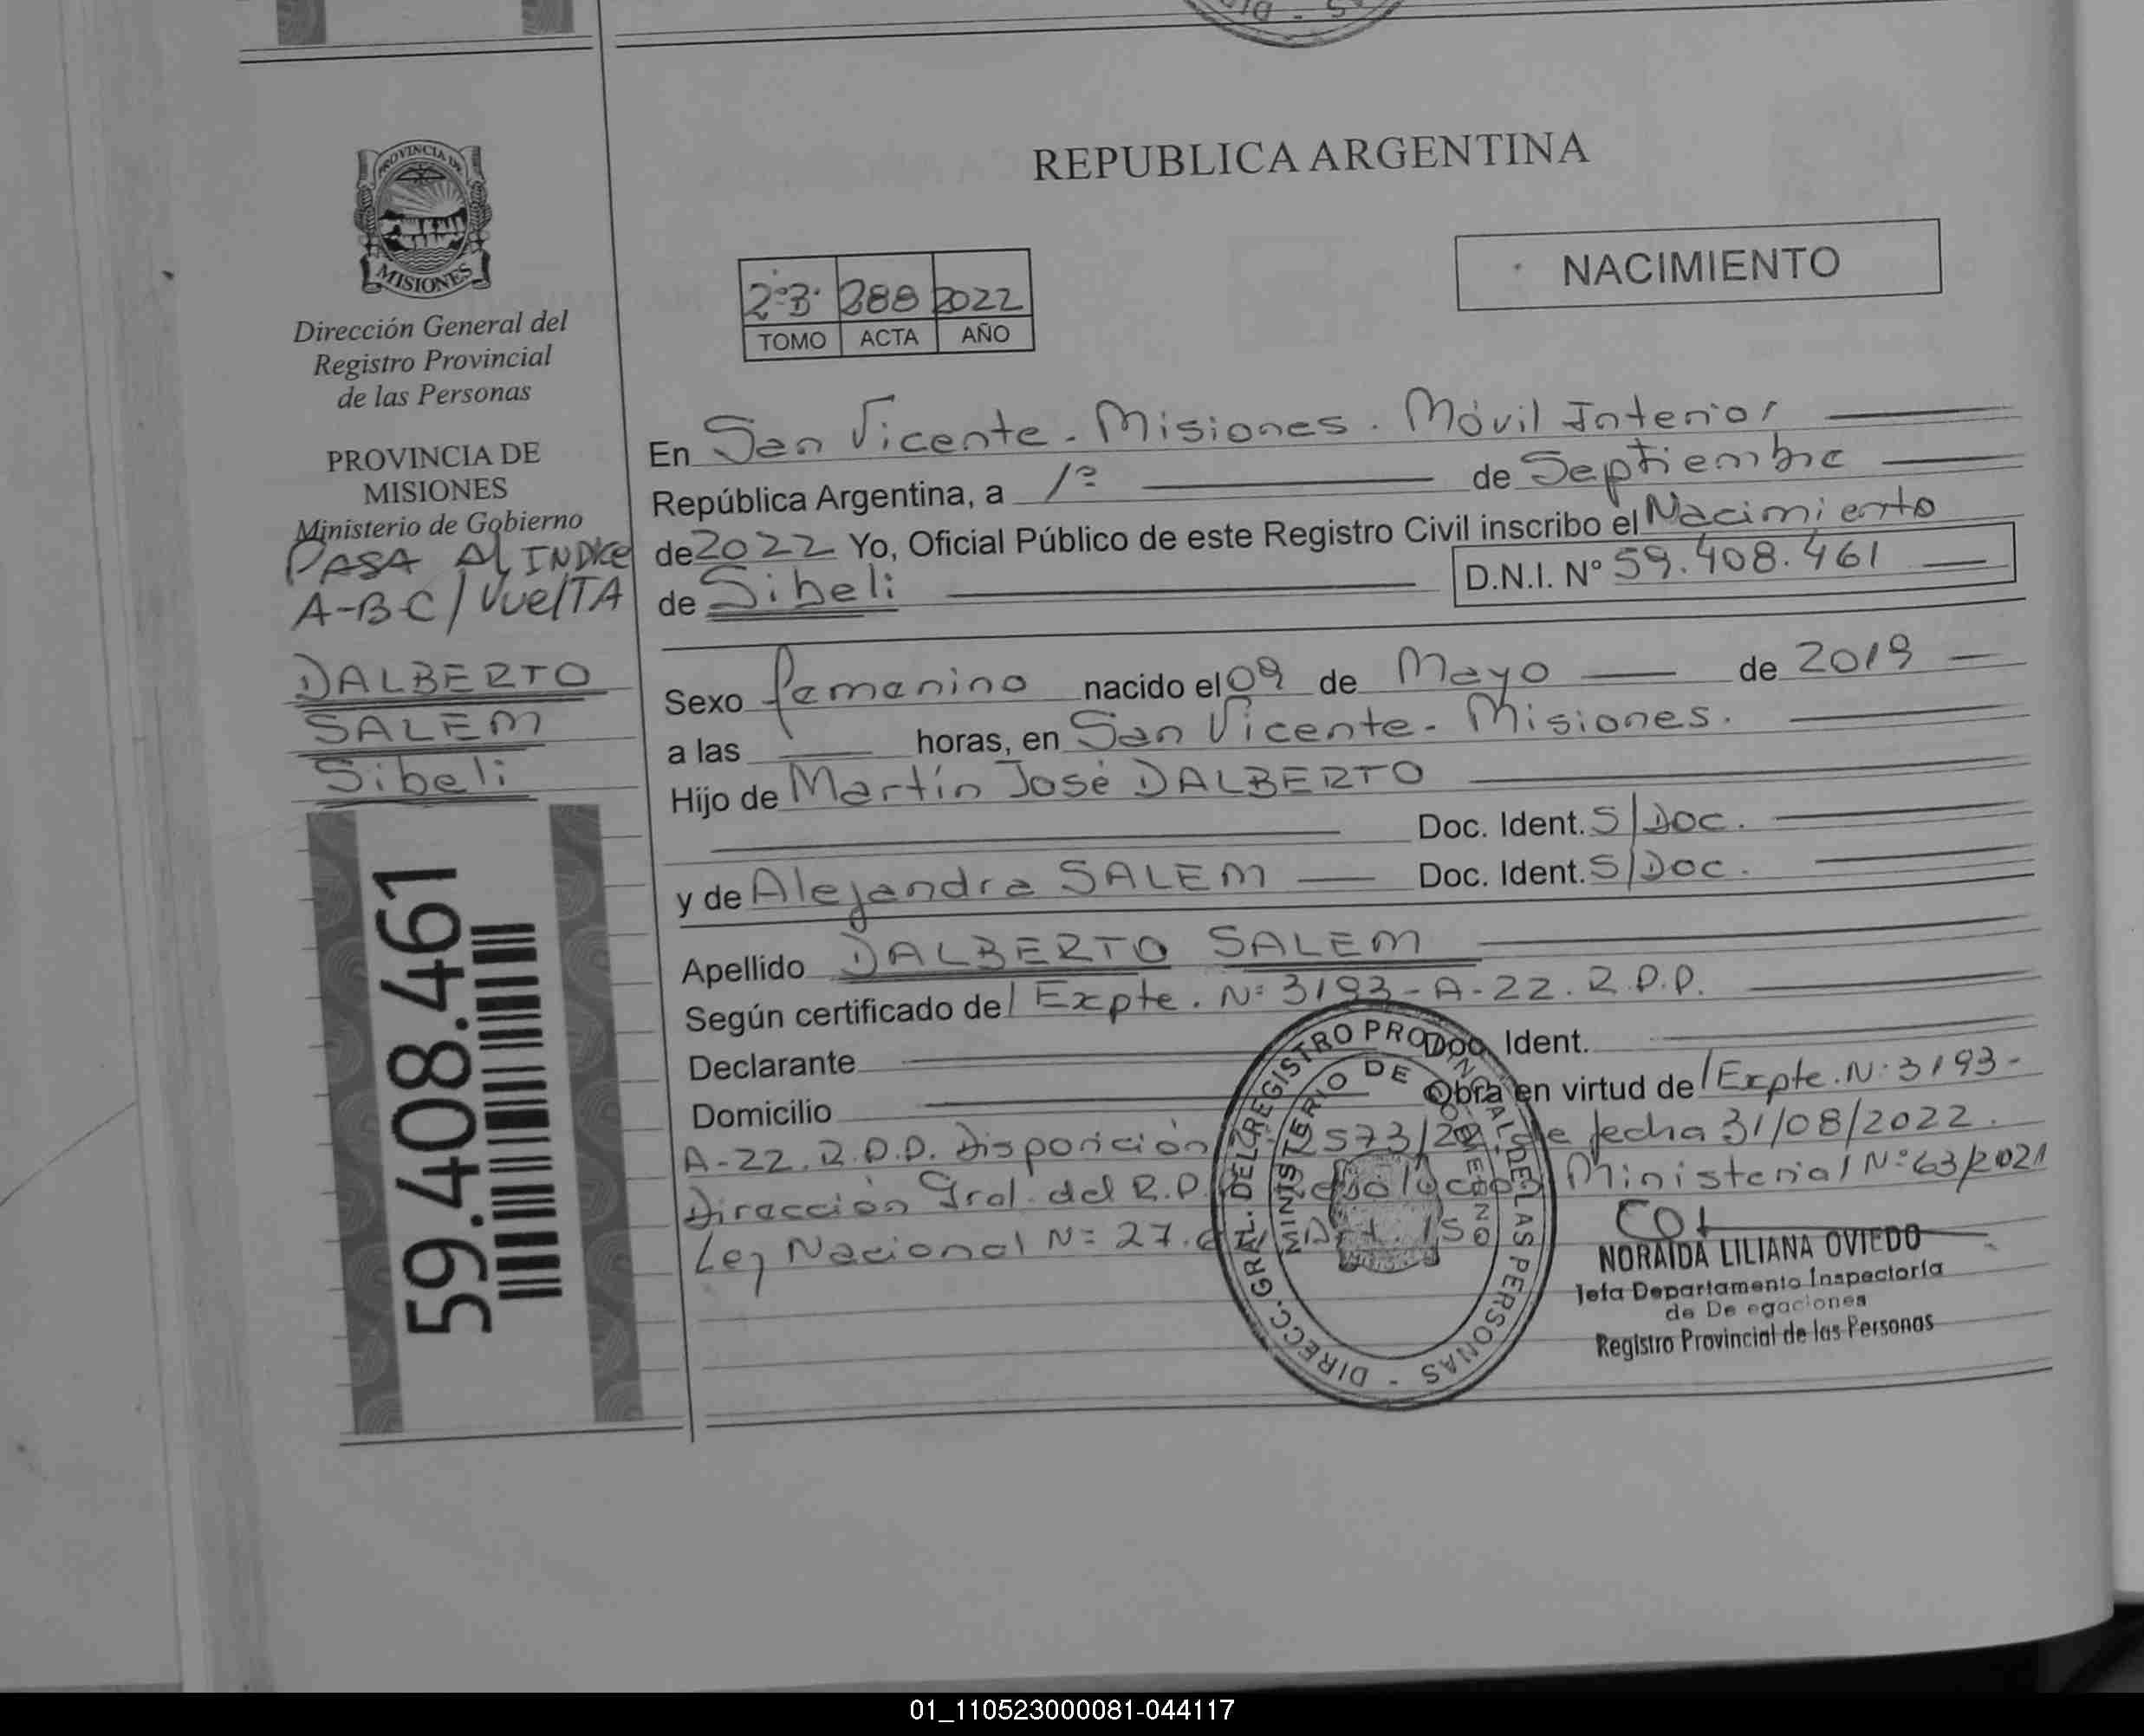 S - DIRE
REPUBLICA ARGENTINA
PROVINCIA DE
MISIONES
Dirección General del
Registro Provincial
de las Personas
PROVINCIA DE
MISIONES
Ministerio de Gobierno
PASA AL INDICE
A-B-C/VuelTA
DALBERTO
SALEM
Sibeli
59.408.461
NACIMIENTO
2º B. 288 2022
TOMO ACTA AÑO
En San Vicente - Misiones. Móvil Interior
República Argentina, a 1º de Septiembre
de 2022 Yo, Oficial Público de este Registro Civil inscribo el Nacimiento
de Sibeli D.N.I. Nº 59.408.461
Sexo femenino nacido el 09 de Mayo de 2019
a las horas, en San Vicente - Misiones.
Hijo de Martín José DALBERTO
Doc. Ident. S/Doc.
y de Alejandra SALEM Doc. Ident. S/Doc.
Apellido DALBERTO SALEM
Según certificado de l Expte. Nº 3193-A-22. R.P.P.
Declarante Doc. Ident.
Domicilio Obra en virtud de l Expte. Nº 3193-
A-22. R.P.P. Disposición 2573/22 de fecha 31/08/2022.
Dirección Gral. del R.P. Resolución Ministerial Nº 63/2021
Ley Nacional Nº 27. Art.
DIRECC. GRAL. DEL REGISTRO PROVINCIAL DE LAS PERSONAS -
MINISTERIO DE GOBIERNO
NORAIDA LILIANA OVIEDO
Jefa Departamento Inspectoría
de De egaciones
Registro Provincial de las Personas
01_110523000081-044117